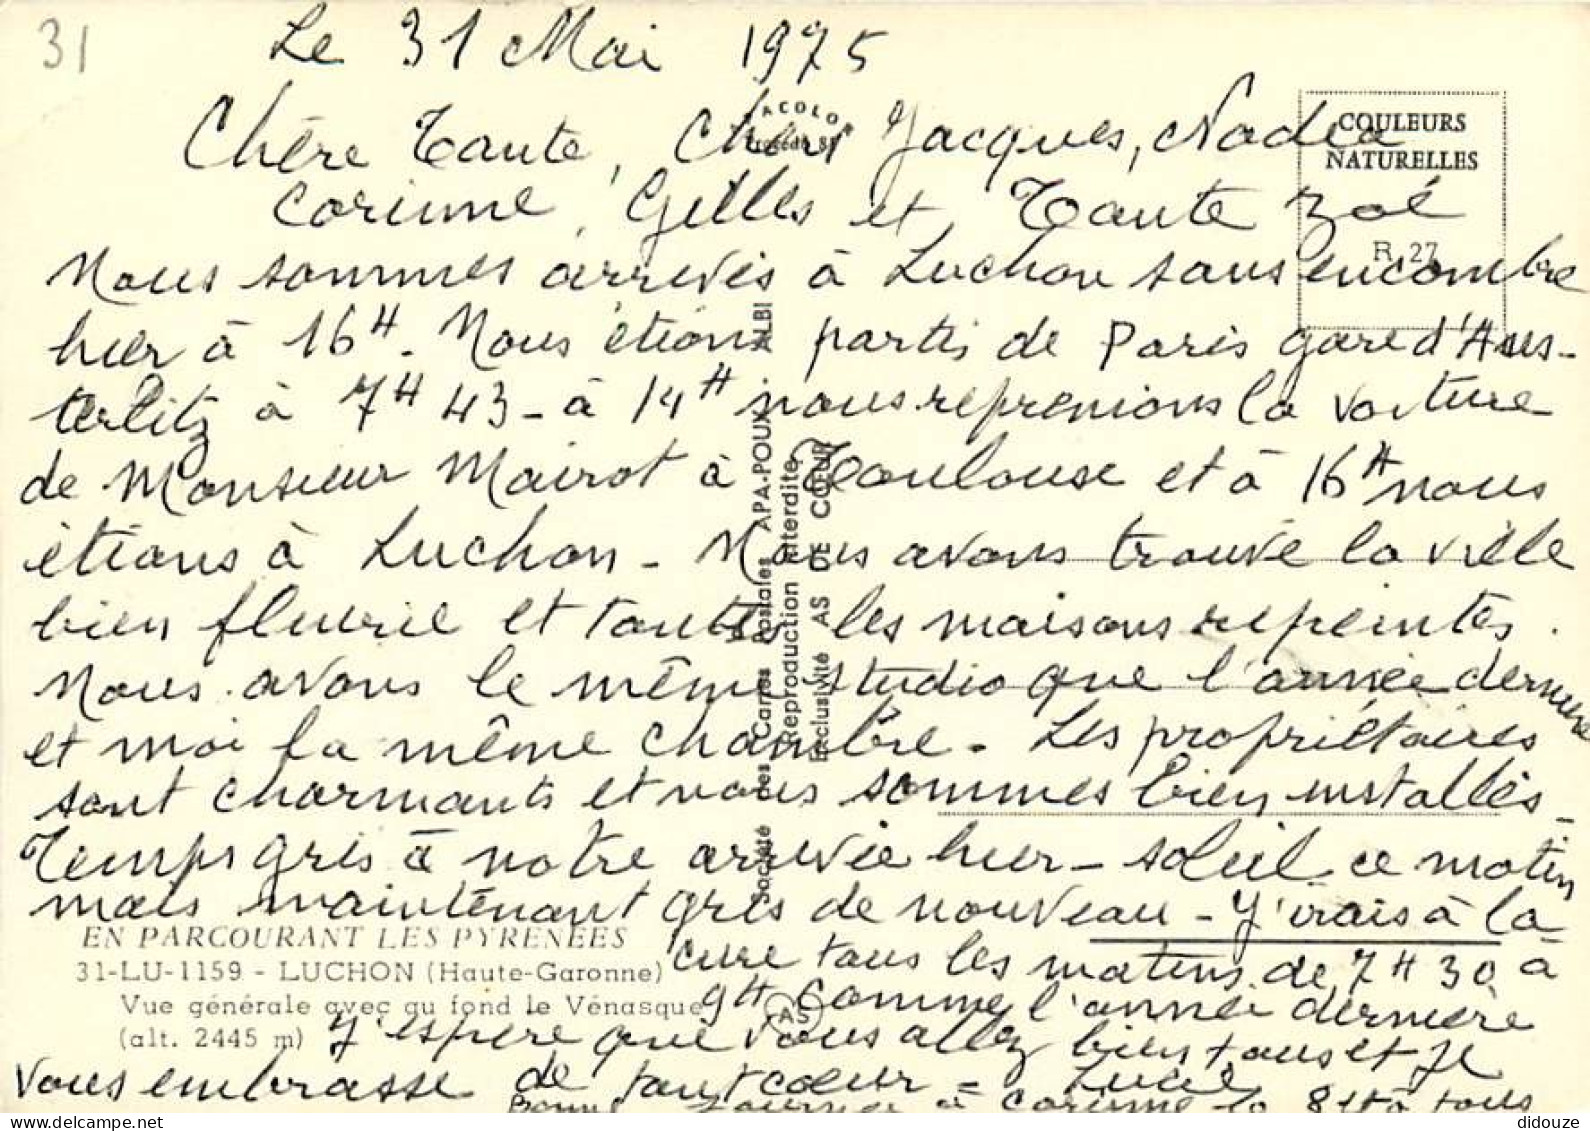 31
Le 31 Mai 1975
Chère Tante, Chers Jacques, Nadia
Corinne, Gilles et Tante Zoé
COULEURS
NATURELLES
R 27
Nous sommes arrivés à Luchon sans encombre
hier à 16H. Nous étions partis de Paris gare d'Aus-
terlitz à 7H 43 - à 14H nous reprenions la voiture
de Monsieur Mairot à Toulouse et à 16H nous
étions à Luchon - Nous avons trouvé la ville
bien fleurie et toutes les maisons repeintes.
Nous avons le même studio que l'année dernière
et moi la même chambre. Les propriétaires
sont charmants et nous sommes bien installés -
Temps gris à notre arrivée hier - soleil ce matin
mais maintenant gris de nouveau - J'irais à la
cure tous les matins de 7H 30 à
9H comme l'année dernière
J'espère que vous allez bien tous et je
vous embrasse de tout coeur = Lucie
Bonne à Corinne à tous
EN PARCOURANT LES PYRENEES
31-LU-1159 - LUCHON (Haute-Garonne)
Vue générale avec au fond le Vénasque
(alt. 2445 m)
AS
Société des Cartes Postales APA-POUX ALBI
Reproduction interdite
Exclusivité AS DE COEUR
delcampe.net
didouze